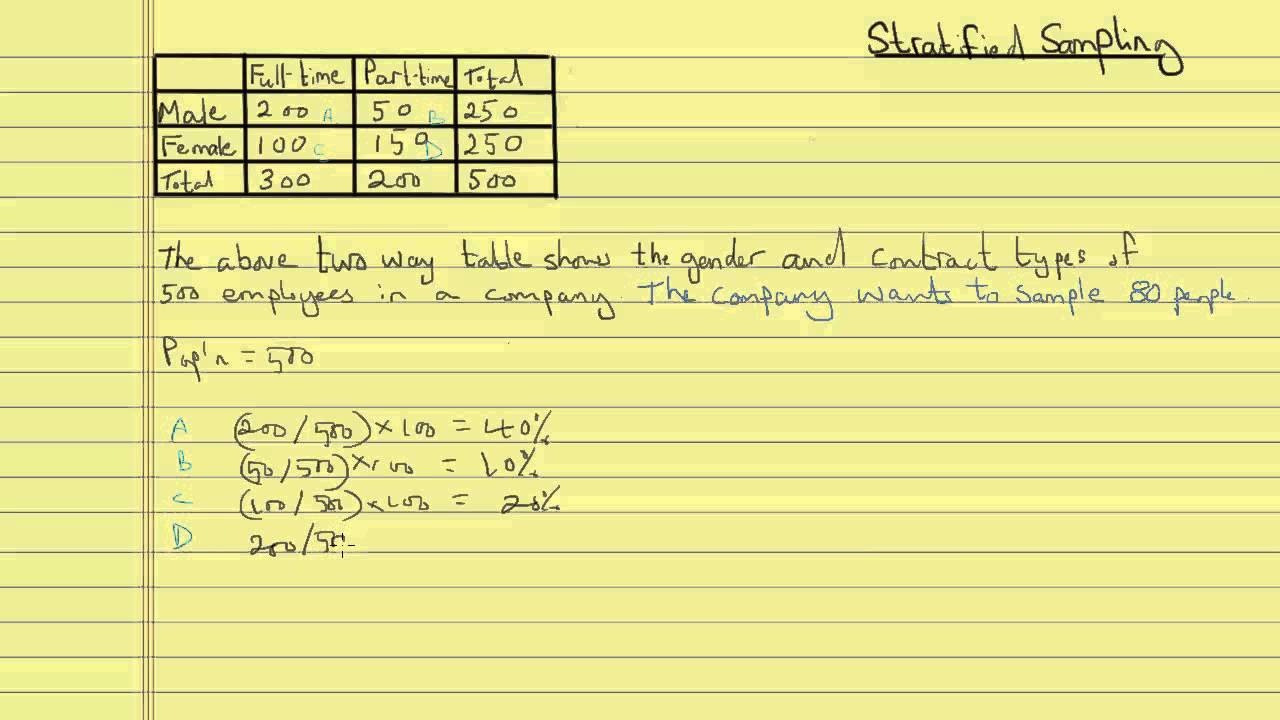 Stratified Sampling
Full-time Part-time Total
Male 200 A 50 B 250
Female 100 C 150 D 250
Total 300 200 500
The above two way table shows the gender and contract types of
500 employees in a company. The company wants to sample 80 people.
Pop'n = 500
A (200/500) × 100 = 40%
B (50/500) × 100 = 10%
C (100/500) × 100 = 20%
D 200/500